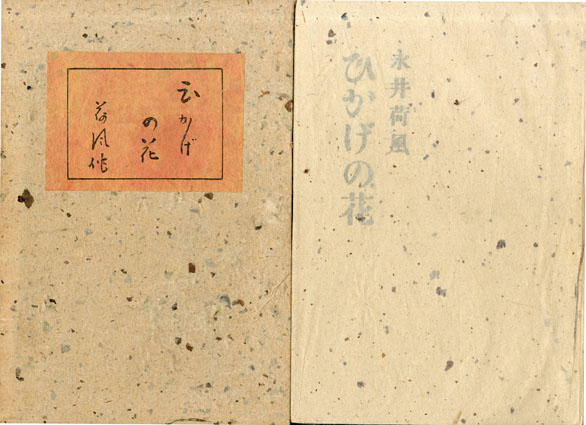 ひかげ
の花
荷風作
永井荷風
ひかげの花